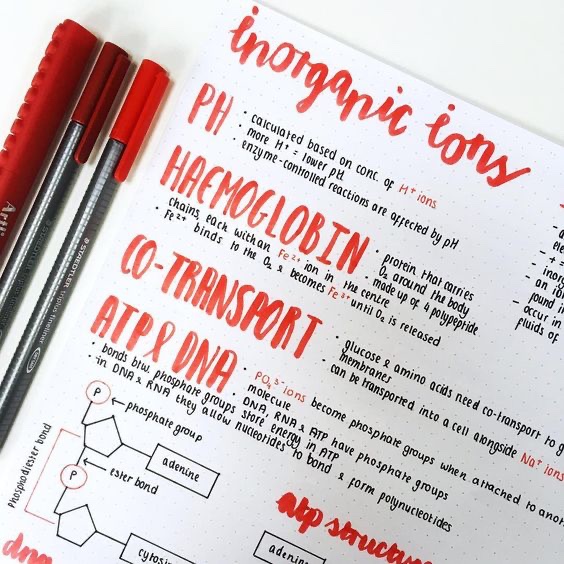 inorganic ions
PH
• calculated based on conc. of H+ ions
• more H+ = lower pH
enzyme-controlled reactions are affected by pH
HAEMOGLOBIN
• protein that carries
O₂ around the body
• made up of 4 polypeptide
chains, each with an Fe²⁺ ion in the centre
• Fe²⁺ binds to the O₂ & becomes Fe³⁺ until O₂ is released
CO-TRANSPORT
• glucose & amino acids need co-transport to
membranes
• can be transported into a cell alongside Na⁺ ions
ATP & DNA
• PO₄³⁻ ions become phosphate groups when attached to
molecule
• DNA, RNA & ATP have phosphate groups
• bonds btw. phosphate groups store energy in ATP
• in DNA & RNA they allow nucleotides to bond & form polynucleotides
P
phosphate group
adenine
phosphodiester bond
P
ester bond
atp structure
adenine
dna
STAEDTLER triplus fineliner
STAEDTLER
occur in
fluids of